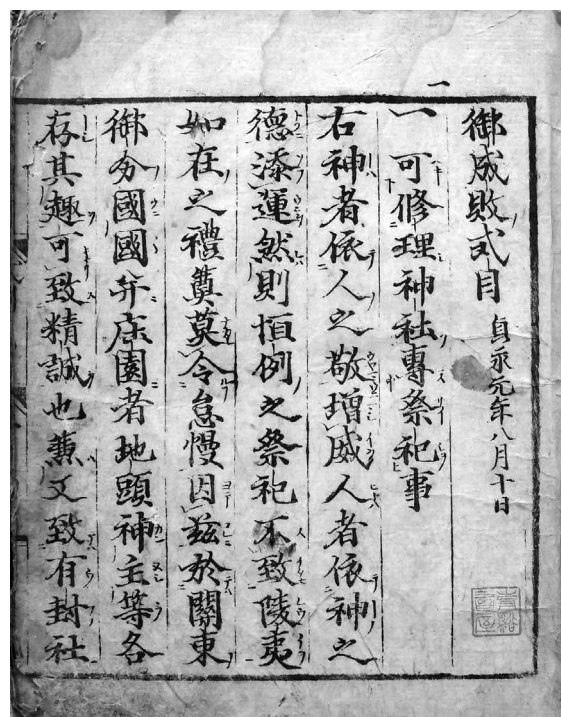 御成敗式目 貞永元年八月十日
一 可修理神社專祭祀事
右神者依人之敬增威人者依神之
德添運然則恒例之祭祀不致陵夷
如在之禮奠莫令怠慢因茲於關東
御分國國并庄園者地頭神主等各
存其趣可致精誠也兼又致有封社